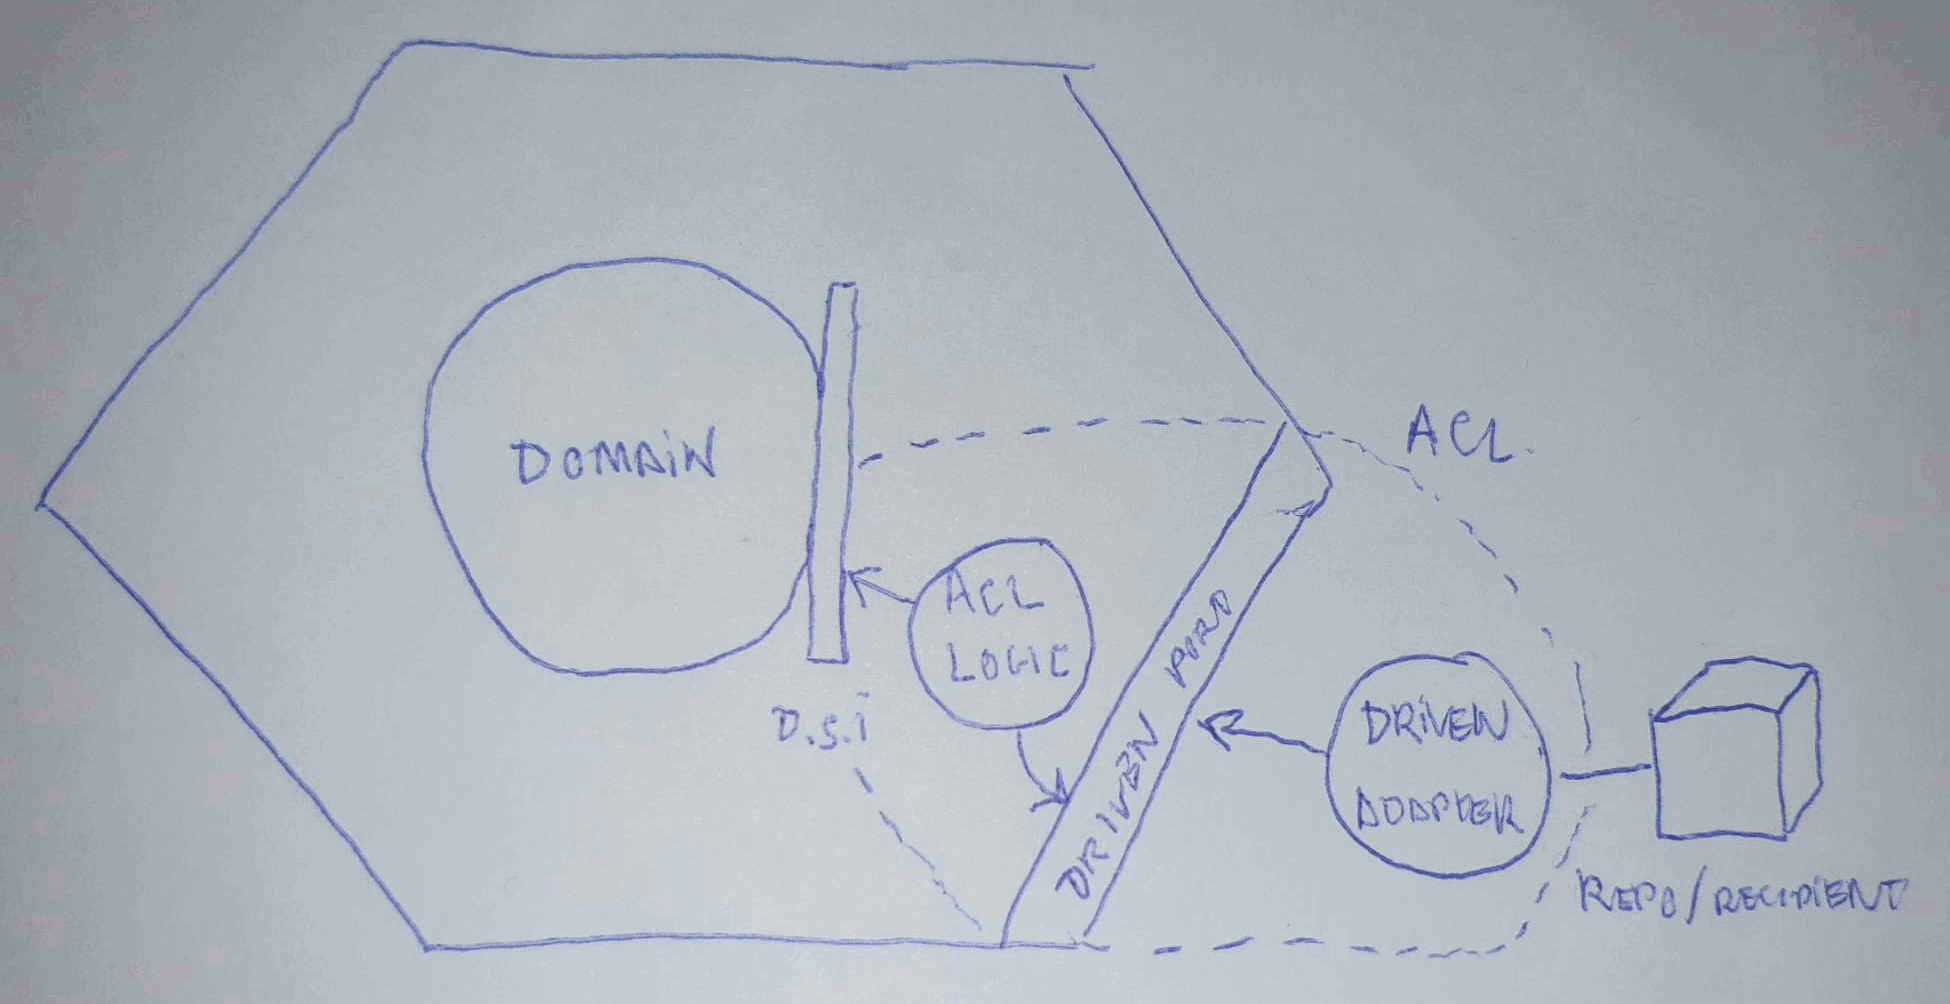 DOMAIN
ACL.
ACL
LOGIC
D.S.i
DRIVEN PORT
DRIVEN
ADAPTER
REPO/RECIPIENT